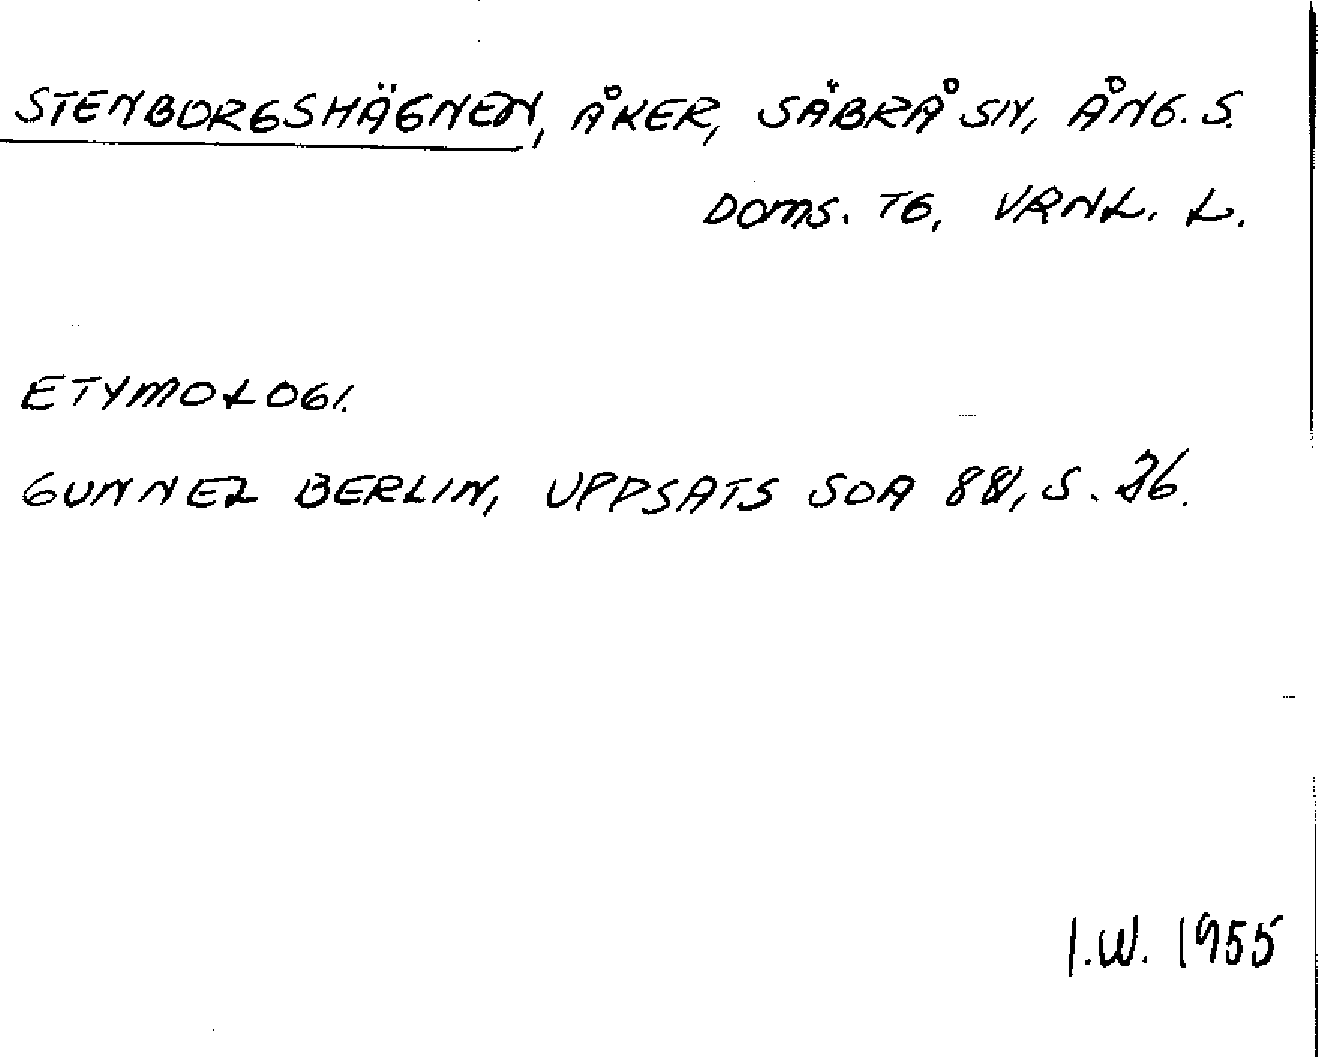 STENBORGSHÄGNEN, ÅKER, SÄBRÅ SN, ÅNG. S.
DOMS. TG, VRNL. L.
ETYMOLOGI.
GUNNEL BERLIN, UPPSATS SOA 88, S. 26.
I.W. 1955